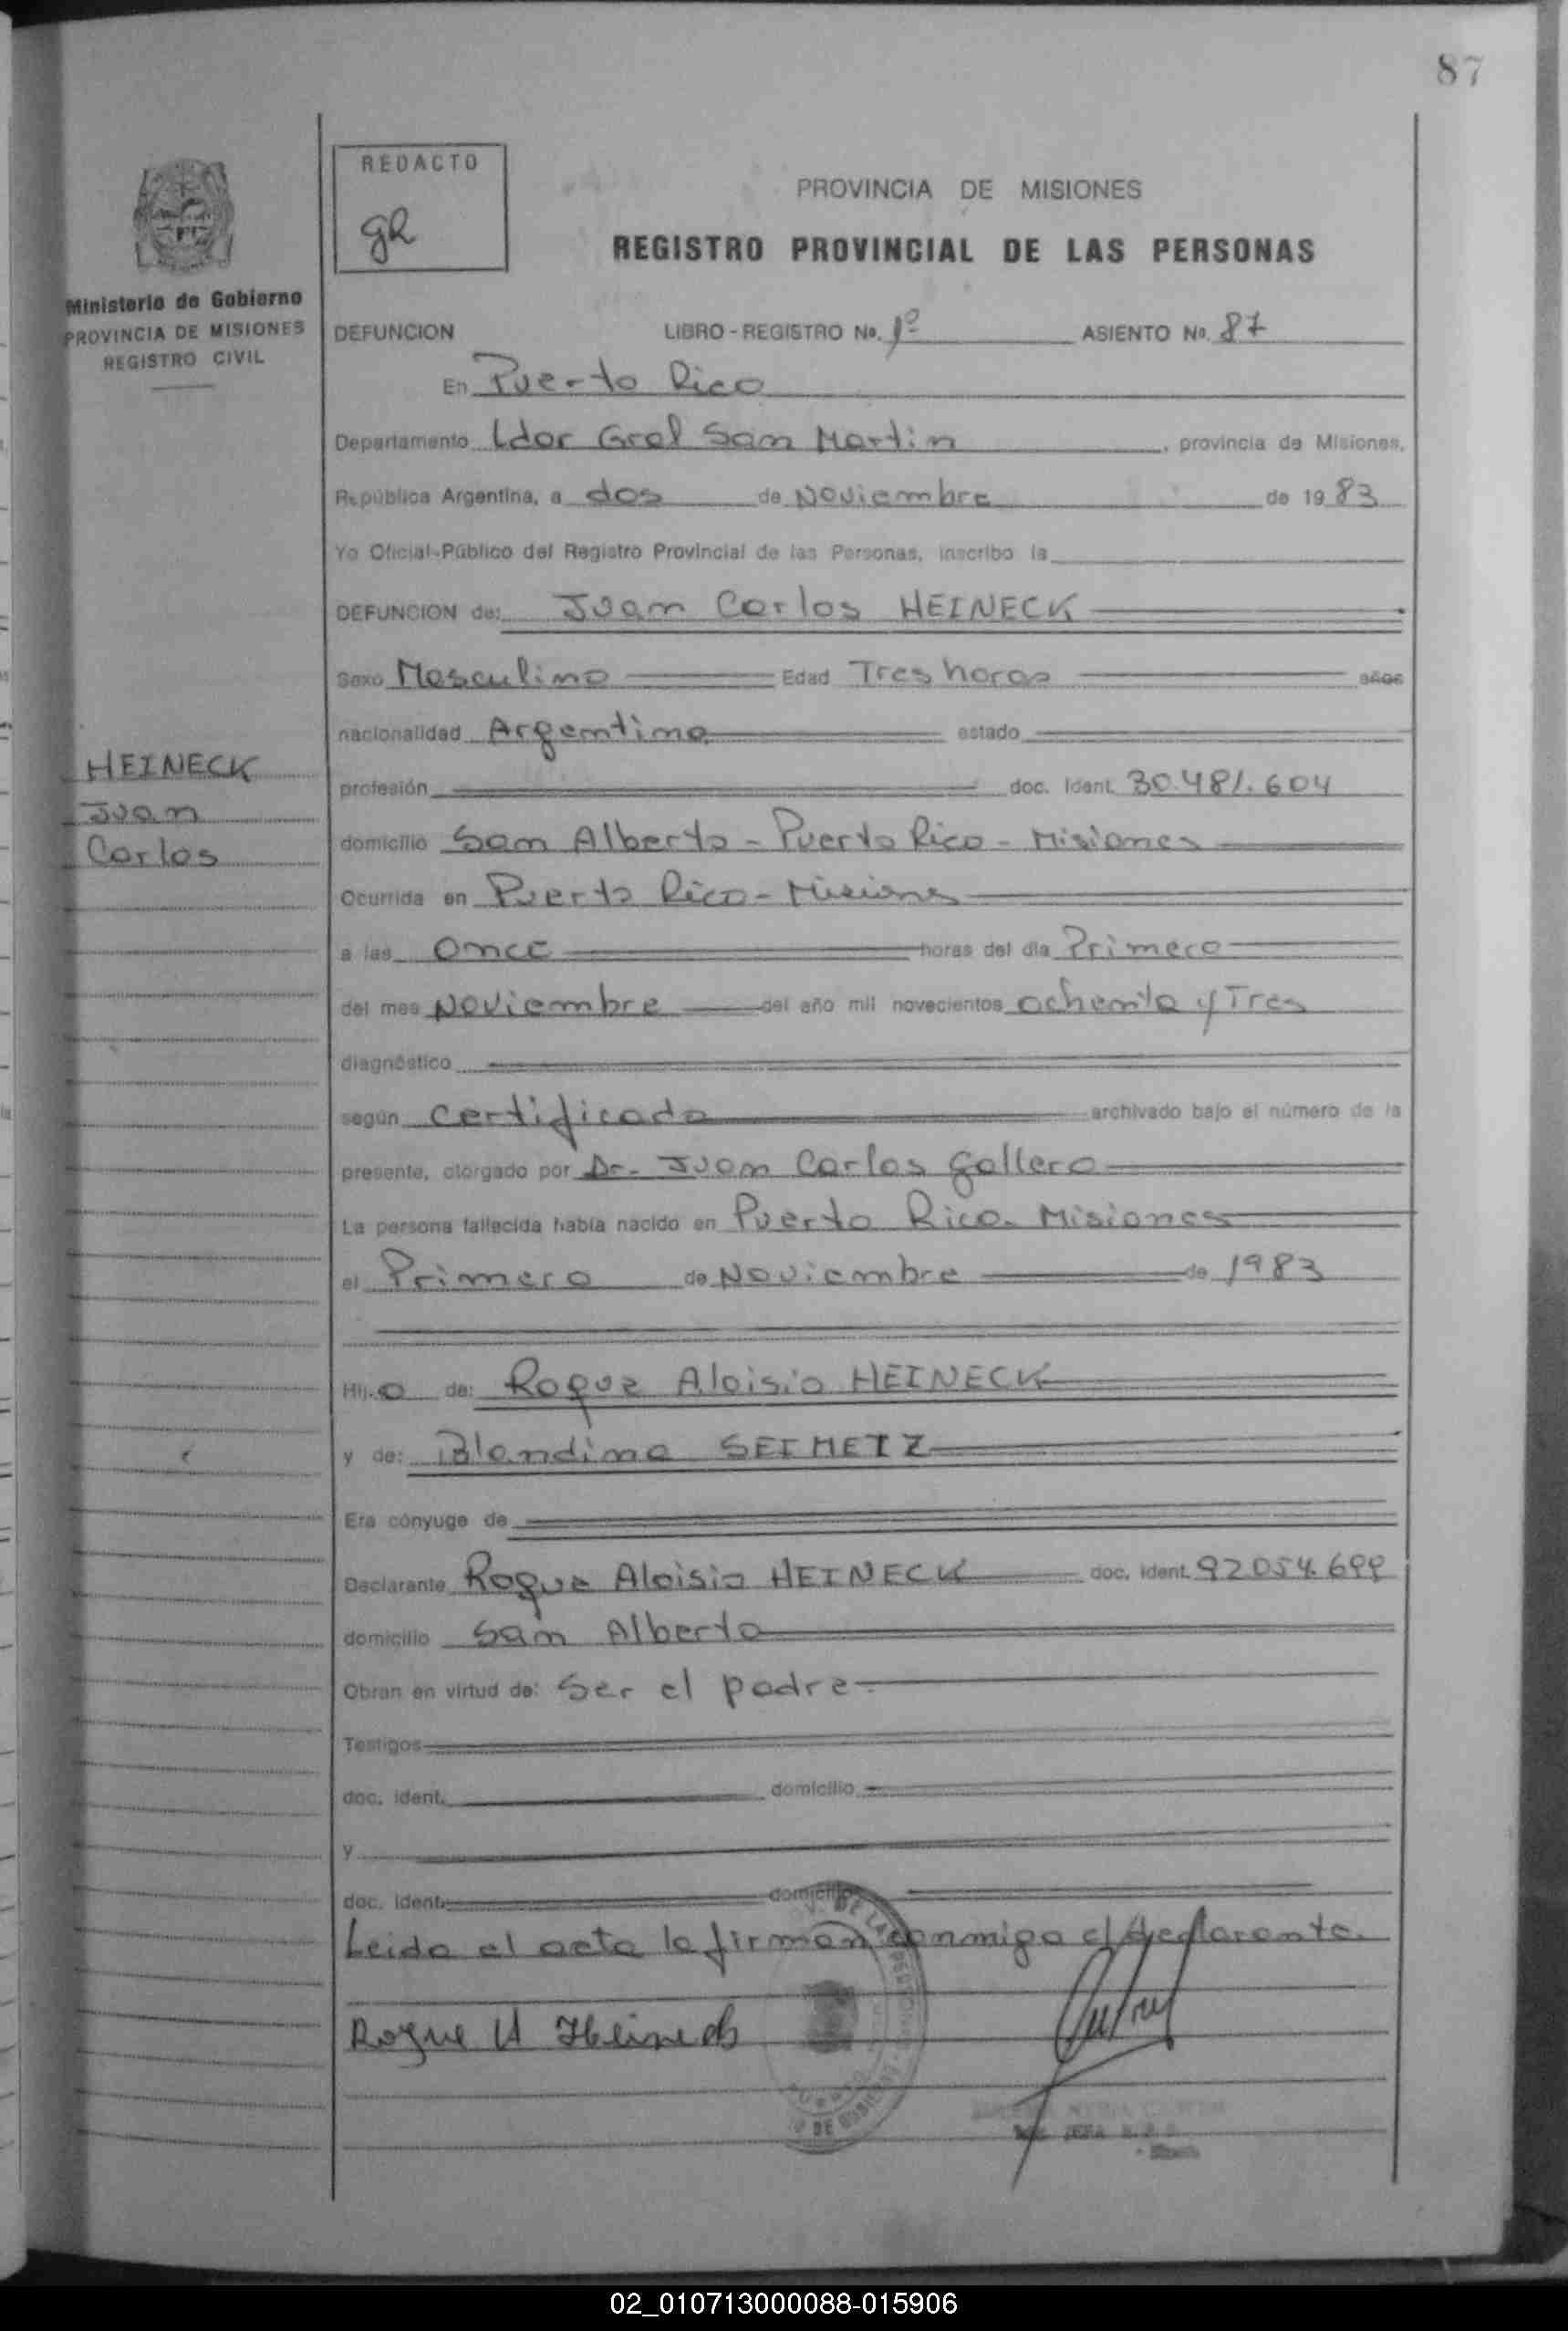 87
REDACTO
gR
PROVINCIA DE MISIONES
REGISTRO PROVINCIAL DE LAS PERSONAS
Ministerio de Gobierno
PROVINCIA DE MISIONES
REGISTRO CIVIL
DEFUNCION LIBRO - REGISTRO No. 1º ASIENTO No. 87
En Puerto Rico
Departamento Ldor Gral San Martin, provincia de Misiones,
República Argentina, a dos de Noviembre de 1983
Yo Oficial-Público del Registro Provincial de las Personas, inscribo la
DEFUNCION de: Juan Carlos HEINECK
Sexo Masculino Edad Tres horas años
nacionalidad Argentina estado
HEINECK
Juan
Carlos
profesión doc. ident. 30.481.604
domicilio San Alberto - Puerto Rico - Misiones
Ocurrida en Puerto Rico - Misiones
a las Once horas del día Primero
del mes Noviembre del año mil novecientos ochenta y Tres
diagnóstico
según certificado archivado bajo el número de la
presente, otorgado por Dr. Juan Carlos Gallero
La persona fallecida había nacido en Puerto Rico. Misiones
el Primero de Noviembre de 1983
Hijo de: Roque Aloisio HEINECK
y de: Blandina SEIMETZ
Era cónyuge de
Declarante Roque Aloisio HEINECK doc. ident. 92054.699
domicilio San Alberto
Obran en virtud de: Ser el padre.
Testigos
doc. ident. domicilio
y
doc. ident. domicilio
Leida el acta la firman conmigo el declarante.
Roque A Heineck
02_010713000088-015906